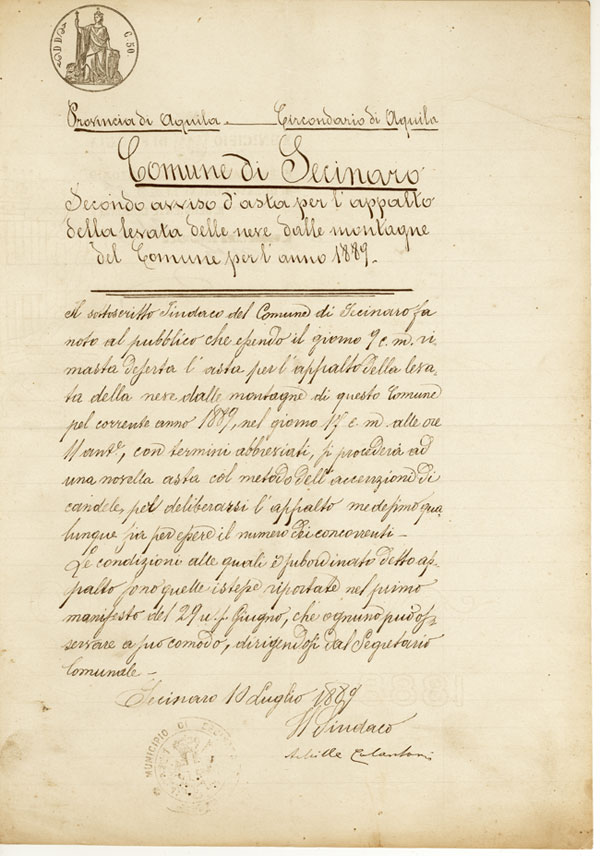 C. 50.
Provincia di Aquila. Circondario di Aquila
Comune di Secinaro
Secondo avviso d'asta per l'appalto
della levata delle neve dalle montagne
del Comune per l'anno 1889.
Il sottoscritto Sindaco del Comune di Secinaro fa
noto al pubblico che essendo il giorno 9 c. m. ri-
masta deserta l'asta per l'appalto della leva-
ta della neve dalle montagne di questo Comune
pel corrente anno 1889, nel giorno 17 c. m. alle ore
11 antᵉ, con termini abbreviati, si procederà ad
una novella asta col metodo dell'accenzione di
candele, pel deliberarsi l'appalto medesimo qua-
lunque sia per essere il numero dei concorrenti –
Le condizioni alle quali è subordinato detto ap-
palto sono quelle istesse riportate nel primo
manifesto del 29 u. s. Giugno, che ognuno può os-
servare a suo comodo, dirigendosi dal Segretario
Comunale –
Secinaro Luglio 1889
Il Sindaco
Achille Colantoni
MUNICIPIO DI